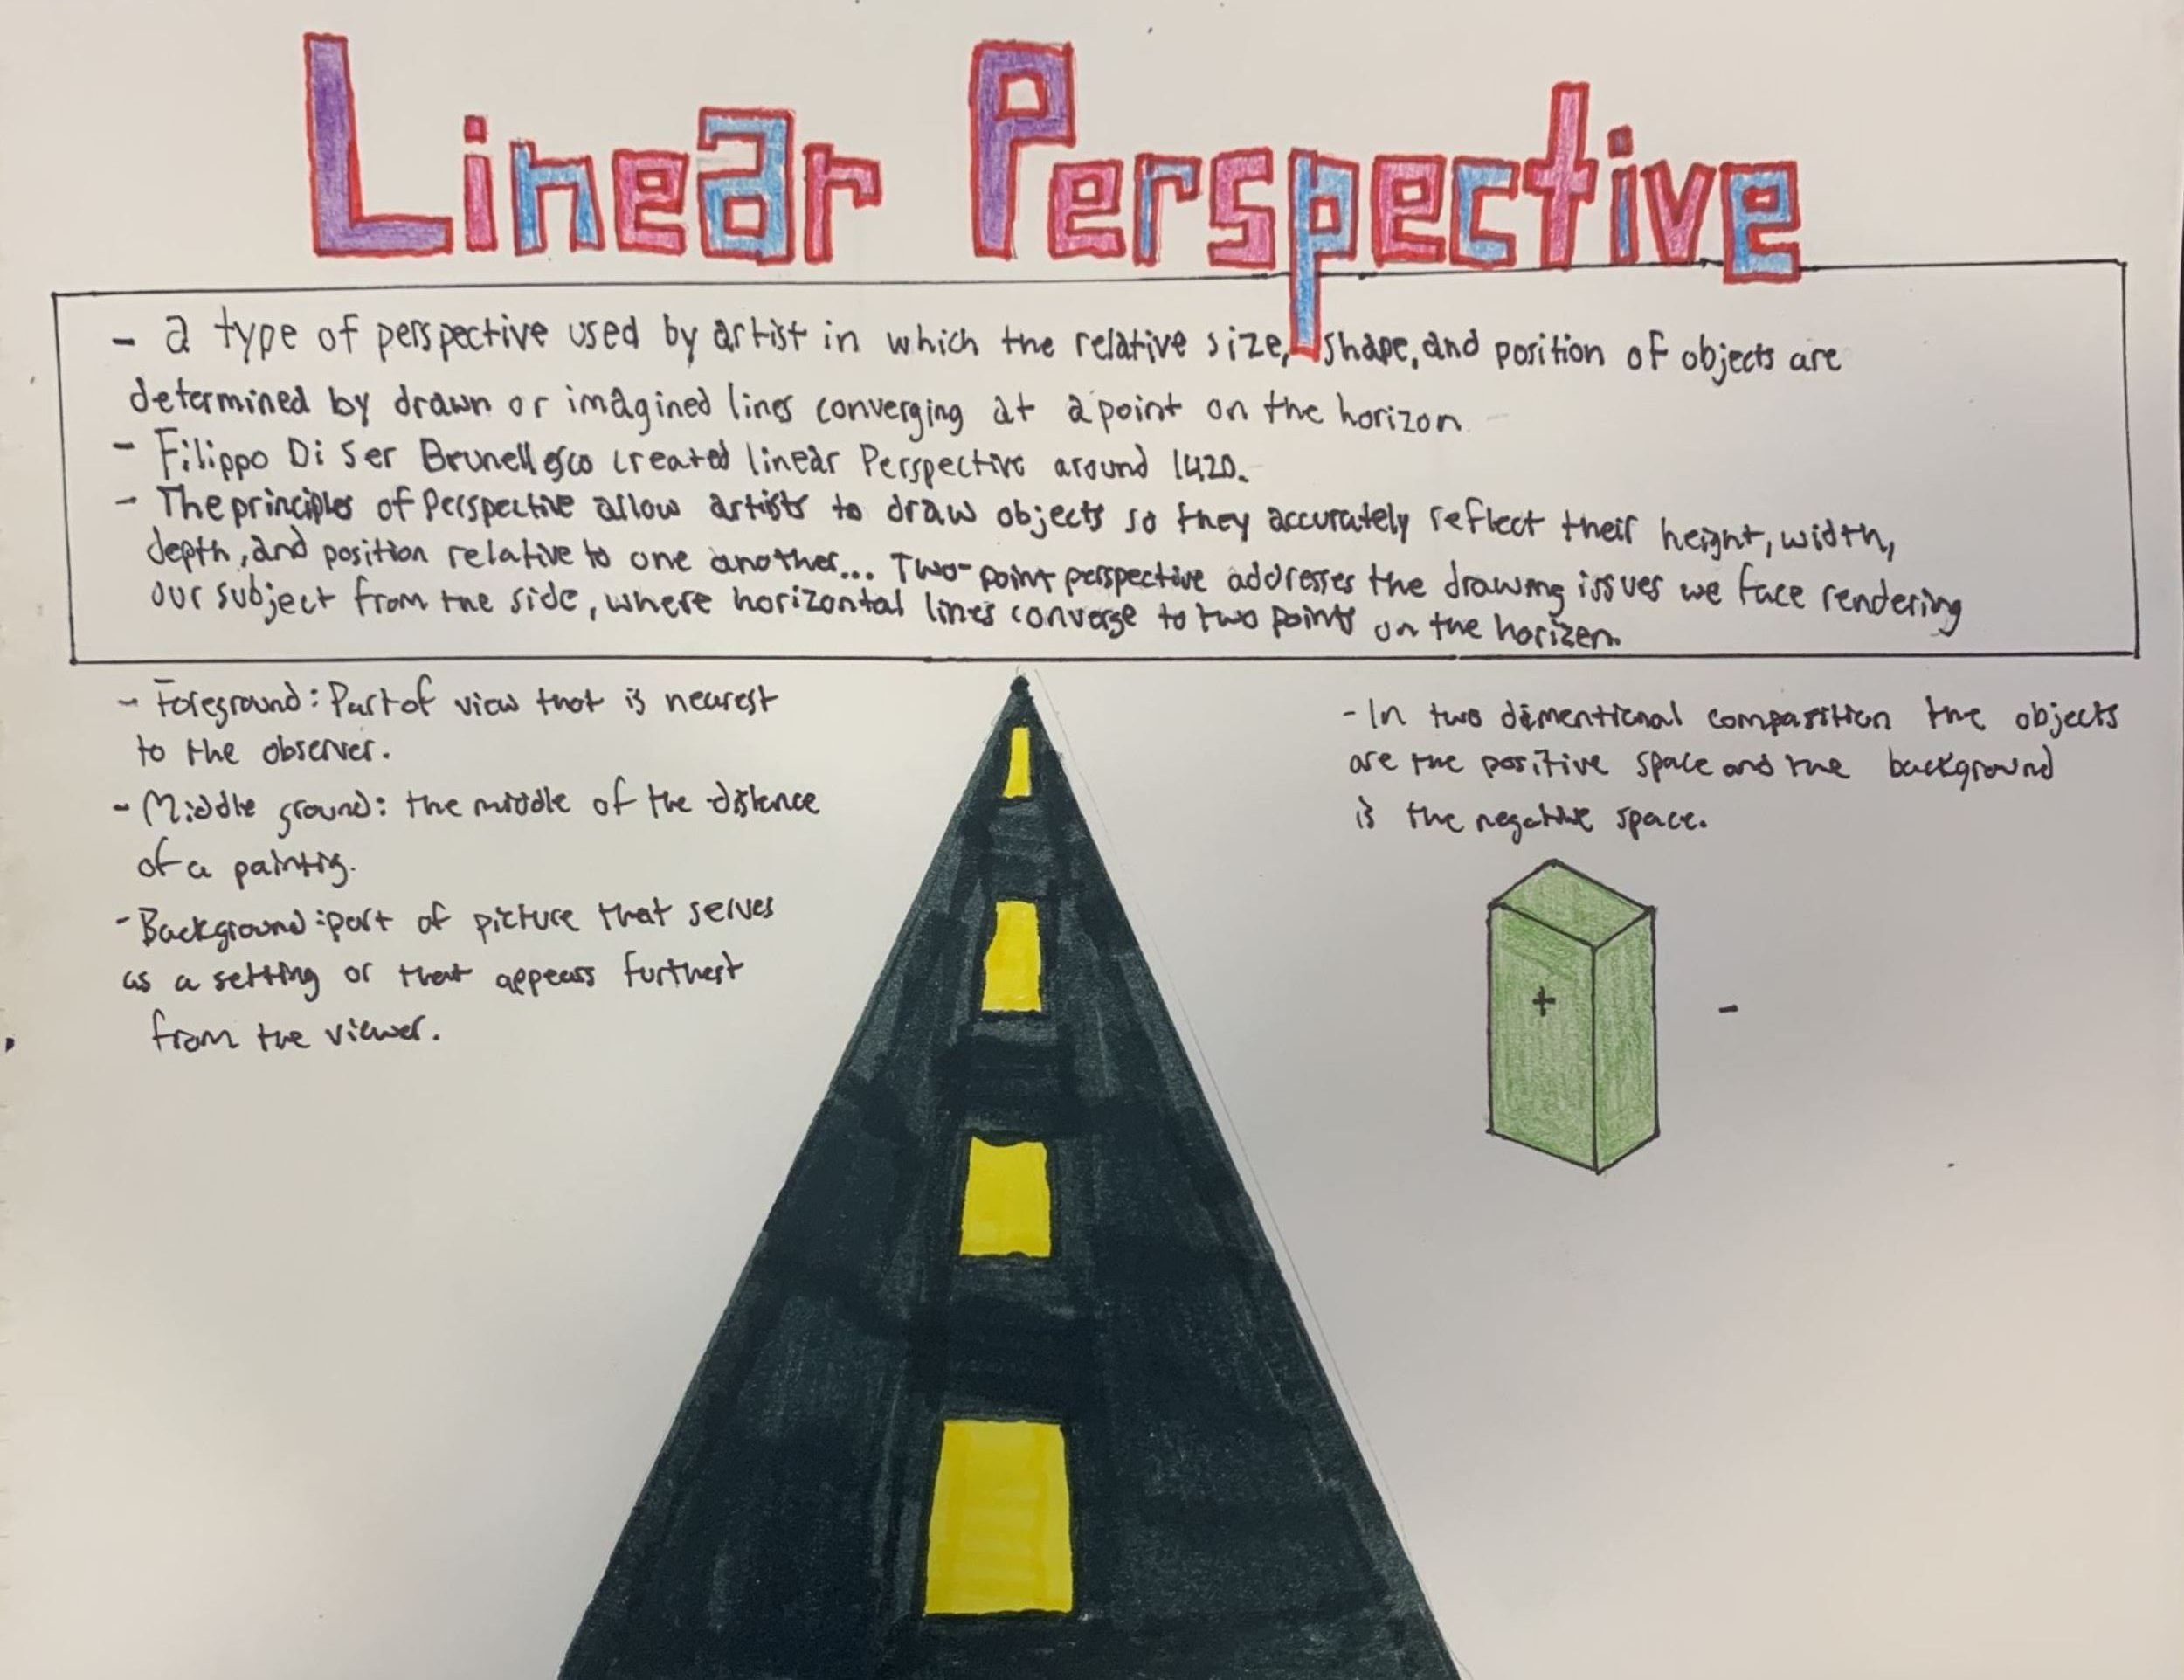 Linear Perspective
- a type of perspective used by artist in which the relative size, shape, and position of objects are
determined by drawn or imagined lines converging at a point on the horizon
- Filippo Di Ser Brunellesco created linear Perspective around 1420.
- The principles of Perspective allow artists to draw objects so they accurately reflect their height, width,
depth, and position relative to one another... Two-point perspective addresses the drawing issues we face rendering
our subject from the side, where horizontal lines converge to two points on the horizen.
- Foreground: Part of view that is nearest
to the observer.
- Middle ground: the middle of the distence
of a paintig.
- Background: part of picture that serves
as a setting or that appears furthest
from the viewer.
- In two dimentional compasition the objects
are the positive space and the background
is the negative space.
+ -